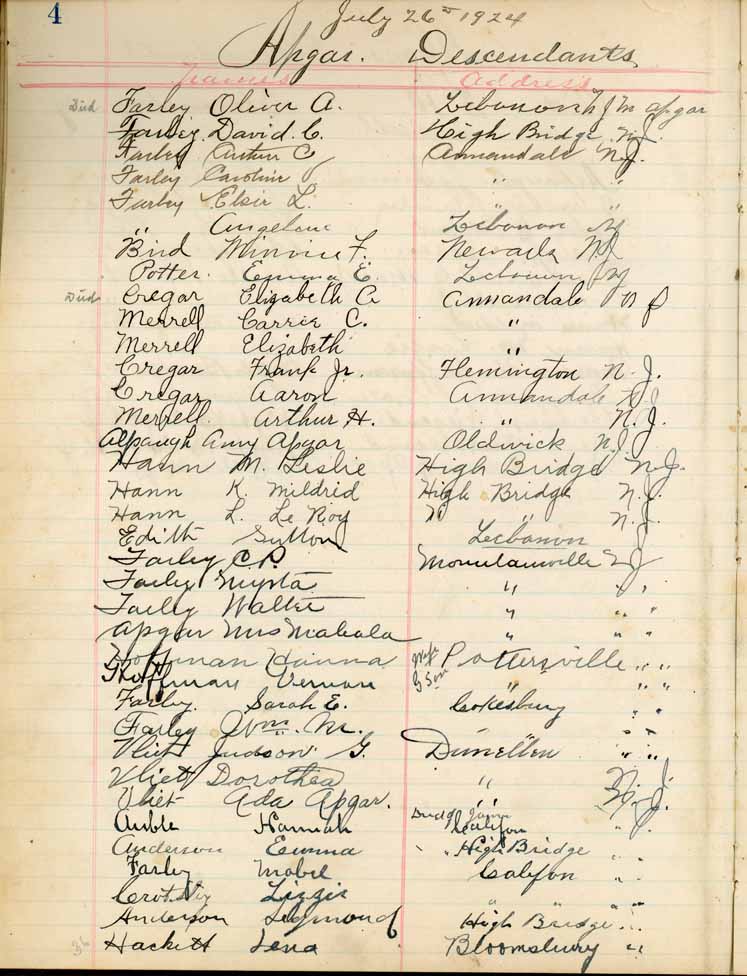 4
July 26th 1924
Apgar. Descendants
Names Address
Died Farley Oliver A. Lebanon NJ Apgar
Farley David C. High Bridge N.J.
Farley C Annandale N.J.
Farley Caroline " "
Farley Elsie L.
" Angeline Lebanon NJ
Bird Minnie F. Newark NJ
Potter. Emma E Lebanon NJ
Died Cregar Elizabeth A Annandale N J
Merrell Carrie C. "
Merrell Elizabeth "
Cregar Frank Jr. Flemington N. J.
Cregar Aaron Annandale N.J.
Merrell Arthur H. " N. J.
Alpaugh Amy Apgar Oldwick N J
Hann M. Leslie High Bridge N.J.
Hann K. Mildred High Bridge N. J.
Hann L. Le Roy " " N. J.
Edith Sutton Lebanon
Farley C.P. NJ
Farley " " "
Farley Walter " " "
Apgar Mrs Mahala " " "
Hoffman Hanna Wife Pottersville " "
Hoffman Vernon G Son " " "
Farley. Sarah E. Cokesbury " "
Farley Wm. M. " "
Vliet Judson G. Dunellen " "
Vliet Dorothea " N. J.
Vliet Ada Apgar. " N. J.
Auble Hannah Califon " "
Anderson Emma High Bridge " "
Farley Mabel Califon " "
Lizzie " " "
Anderson High Bridge " "
36 Hackett Lena Bloomsbury "